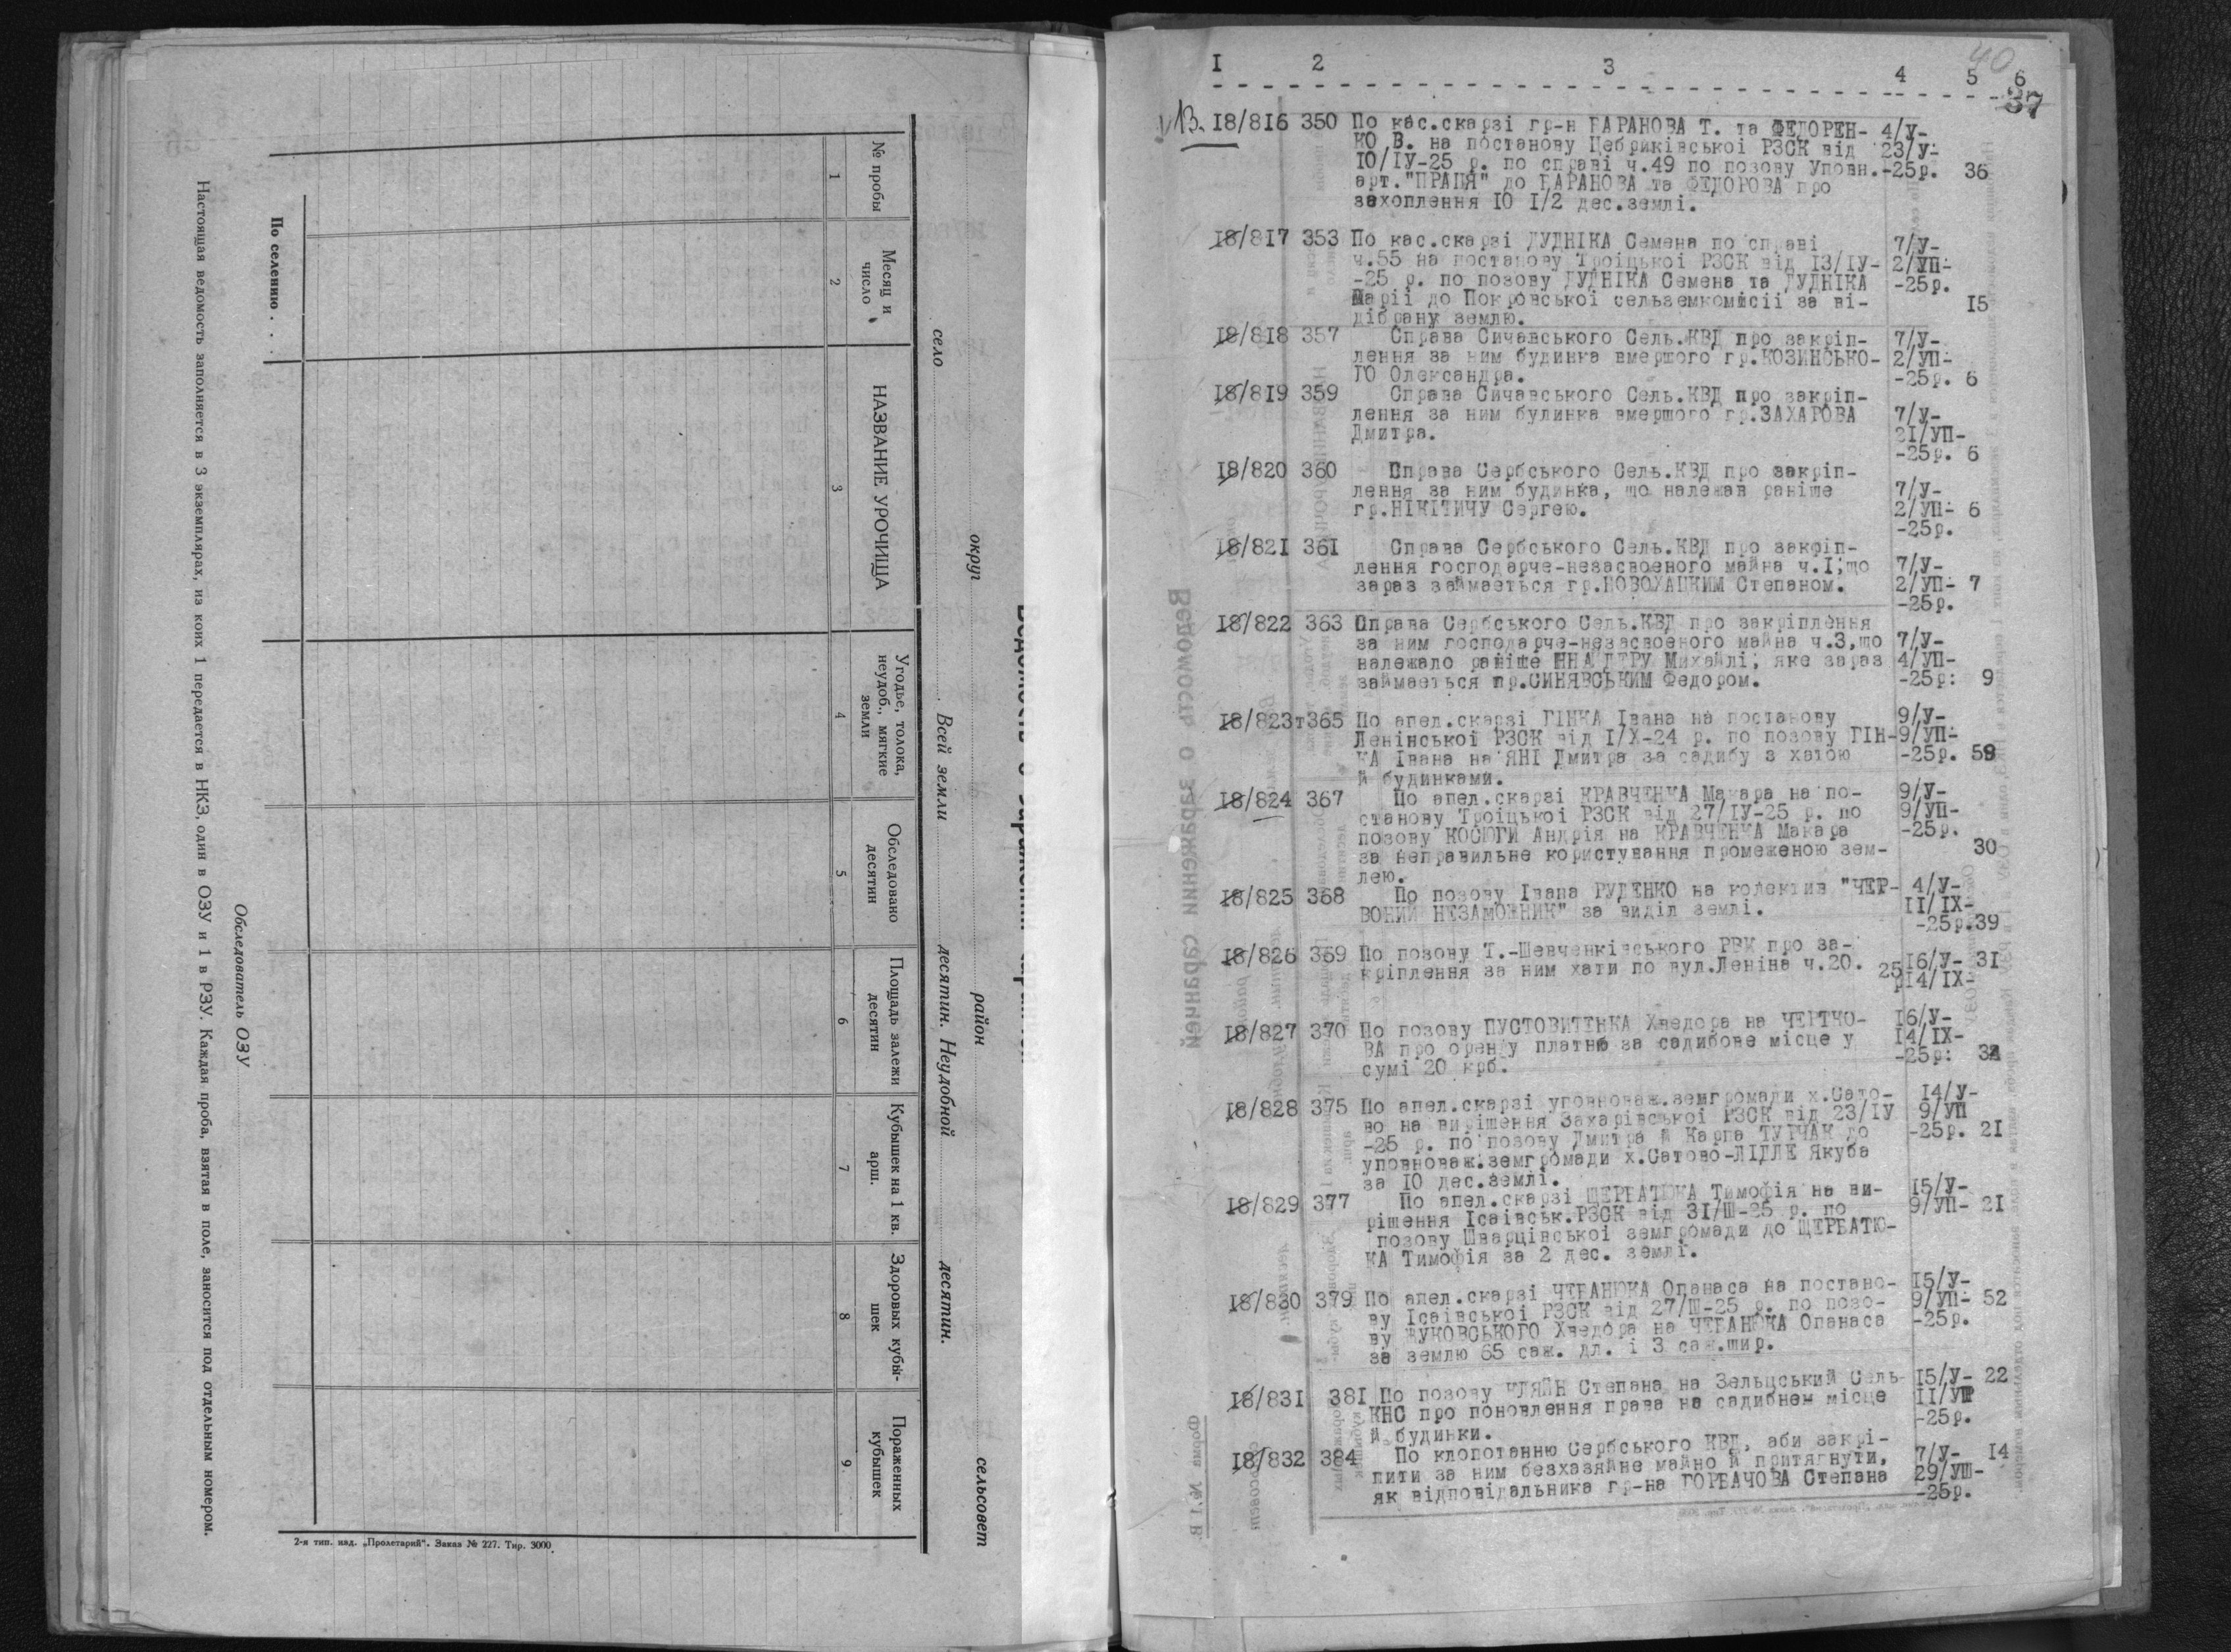 село
округ
район
сельсовет
Всей земли
десятин. Неудобной
десятин.
№ пробы
Месяц и
число
НАЗВАНИЕ УРОЧИЩА
Угодье, толока,
неудоб., мягкие
земли
Обследовано
десятин
Площадь залежи
десятин
Кубышек на 1 кв.
арш.
Здоровых кубы-
шек
Пораженных
кубышек
1 2 3 4 5 6 7 8 9
По селению . . .
Обследователь ОЗУ
Настоящая ведомость заполняется в 3 экземплярах, из коих 1 передается в НКЗ, один в ОЗУ и 1 в РЗУ. Каждая проба, взятая в поле, заносится под отдельным номером.
2-я тип. изд. „Пролетарий". Заказ № 227. Тир. 3000.
40
I 2 3 4 5 6
37
В. I8/8I6 350 По кас.скарзі гр-н БАРАНОВА Т. та ФЕДОРЕН- 4/У-
КО В. на постанову Цебриківської РЗСК від 23/У-
I0/IУ-25 р. по справі ч.49 по позову Уповн. -25р. 36
арт."ПРАЦЯ" до БАРАНОВА та ФЕДОРОВА про
захоплення I0 I/2 дес.землі.
I8/8I7 353 По кас.скарзі ДУДНІКА Семена по справі 7/У-
ч.55 на постанову Троіцької РЗСК від I3/IУ- 2/УП-
-25 р. по позову ДУДНІКА Семена та ДУДНІКА -25р.
Марії до Покровської сельземкомісії за ві- I5
дібрану землю.
I8/8I8 357 Справа Сичавського Сель.КВД про закріп- 7/У-
лення за ним будинка вмершого гр.КОЗИНСЬКО- 2/УП-
ГО Олександра. -25р. 6
I8/8I9 359 Справа Сичавського Сель.КВД про закріп-
лення за ним будинка вмершого гр.ЗАХАРОВА 7/У-
Дмитра. 2I/УП-
-25р. 6
I8/820 360 Справа Сербського Сель.КВД про закріп-
лення за ним будинка, що належав раніше 7/У-
гр.НІКІТИЧУ Сергею. 2/УП- 6
-25р.
I8/82I 36I Справа Сербського Сель.КВД про закріп-
лення господарче-незасвоеного майна ч.I,що 7/У-
зараз займається гр.НОВОХАЦКИМ Степаном. 2/УП- 7
-25р.
I8/822 363 Справа Сербського Сель.КВД про закріплення
за ним господарче-незасвоеного майна ч.3,що 7/У-
належало раніше Михайлі, яке зараз 4/УП-
займається гр.СИНЯВСЬКИМ Федором. -25р: 9
I8/823т365 По апел.скарзі ГІНКА Івана на постанову 9/У-
Ленінської РЗСК від I/X-24 р. по позову ГІН- 9/УП-
КА Івана на ЯНІ Дмитра за садибу з хатою -25р. 59
й будинками.
I8/824 367 По апел.скарзі КРАВЧЕНКА Макара на по- 9/У-
станову Троіцької РЗСК від 27/IУ-25 р. по 9/УП-
позову КОСЮГИ Андрія на КРАВЧЕНКА Макара -25р.
за неправильне користування промеженою зем- 30
лею.
I8/825 368 По позову Івана РУДЕНКО на колектив "ЧЕР- 4/У-
ВОНИЙ НЕЗАМОЖНИК" за виділ землі. II/IX-
-25р.39
I8/826 369 По позову Т.-Шевченківського РВК про за- I6/У- 3I
кріплення за ним хати по вул.Леніна ч.20. 25р I4/IX-
I8/827 370 По позову ПУСТОВИТЕНКА Хведора на ЧЕРТКО- I6/У-
ВА про оренду платню за садибове місце у I4/IX-
сумі 20 крб. -25р:
I8/828 375 По апел.скарзі уповноваж.земгромади х.Сато- I4/У-
во на вирішення Захарівської РЗСК від 23/IУ 9/УП
-25 р. по позову Дмитра й Карпа ТУРЧАК до -25р. 2I
уповноваж.земгромади х.Сатово-ЛІДЛЕ Якуба
за I0 дес.землі.
I8/829 377 По апел.скарзі ЩЕРБАТЮКА Тимофія на ви- I5/У-
рішення Ісаівськ.РЗСК від 3I/Ш-25 р. по 9/УП- 2I
позову Шварцівської земгромади до ЩЕРБАТЮ-
КА Тимофія за 2 дес. землі.
I8/830 379 По апел.скарзі ЧЕБАНЮКА Опанаса на постано- I5/У-
ву Ісаівської РЗСК від 27/Ш-25 р. по позо- 9/УП- 52
ву ЖУКОВСЬКОГО Хведора на ЧЕБАНЮКА Опанаса -25р.
за землю 65 саж. дл. і 3 саж.шир.
I8/83I 38I По позову КЛЯЙН Степана на Зельцський Сель- I5/У- 22
КНС про поновлення права на садибнем місце II/УП
й будинки. -25р.
I8/832 384 По клопотанню Сербського КВД, аби закрі- 7/У- I4
пити за ним безхазяйне майно й притягнути, 29/УШ-
як відповідальника гр-на ГОРБАЧОВА Степана -25р.